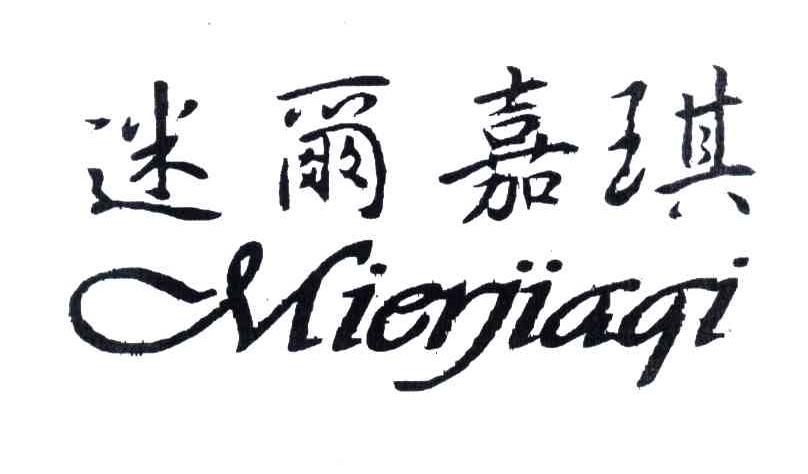 迷爾嘉琪
Mierjiaqi